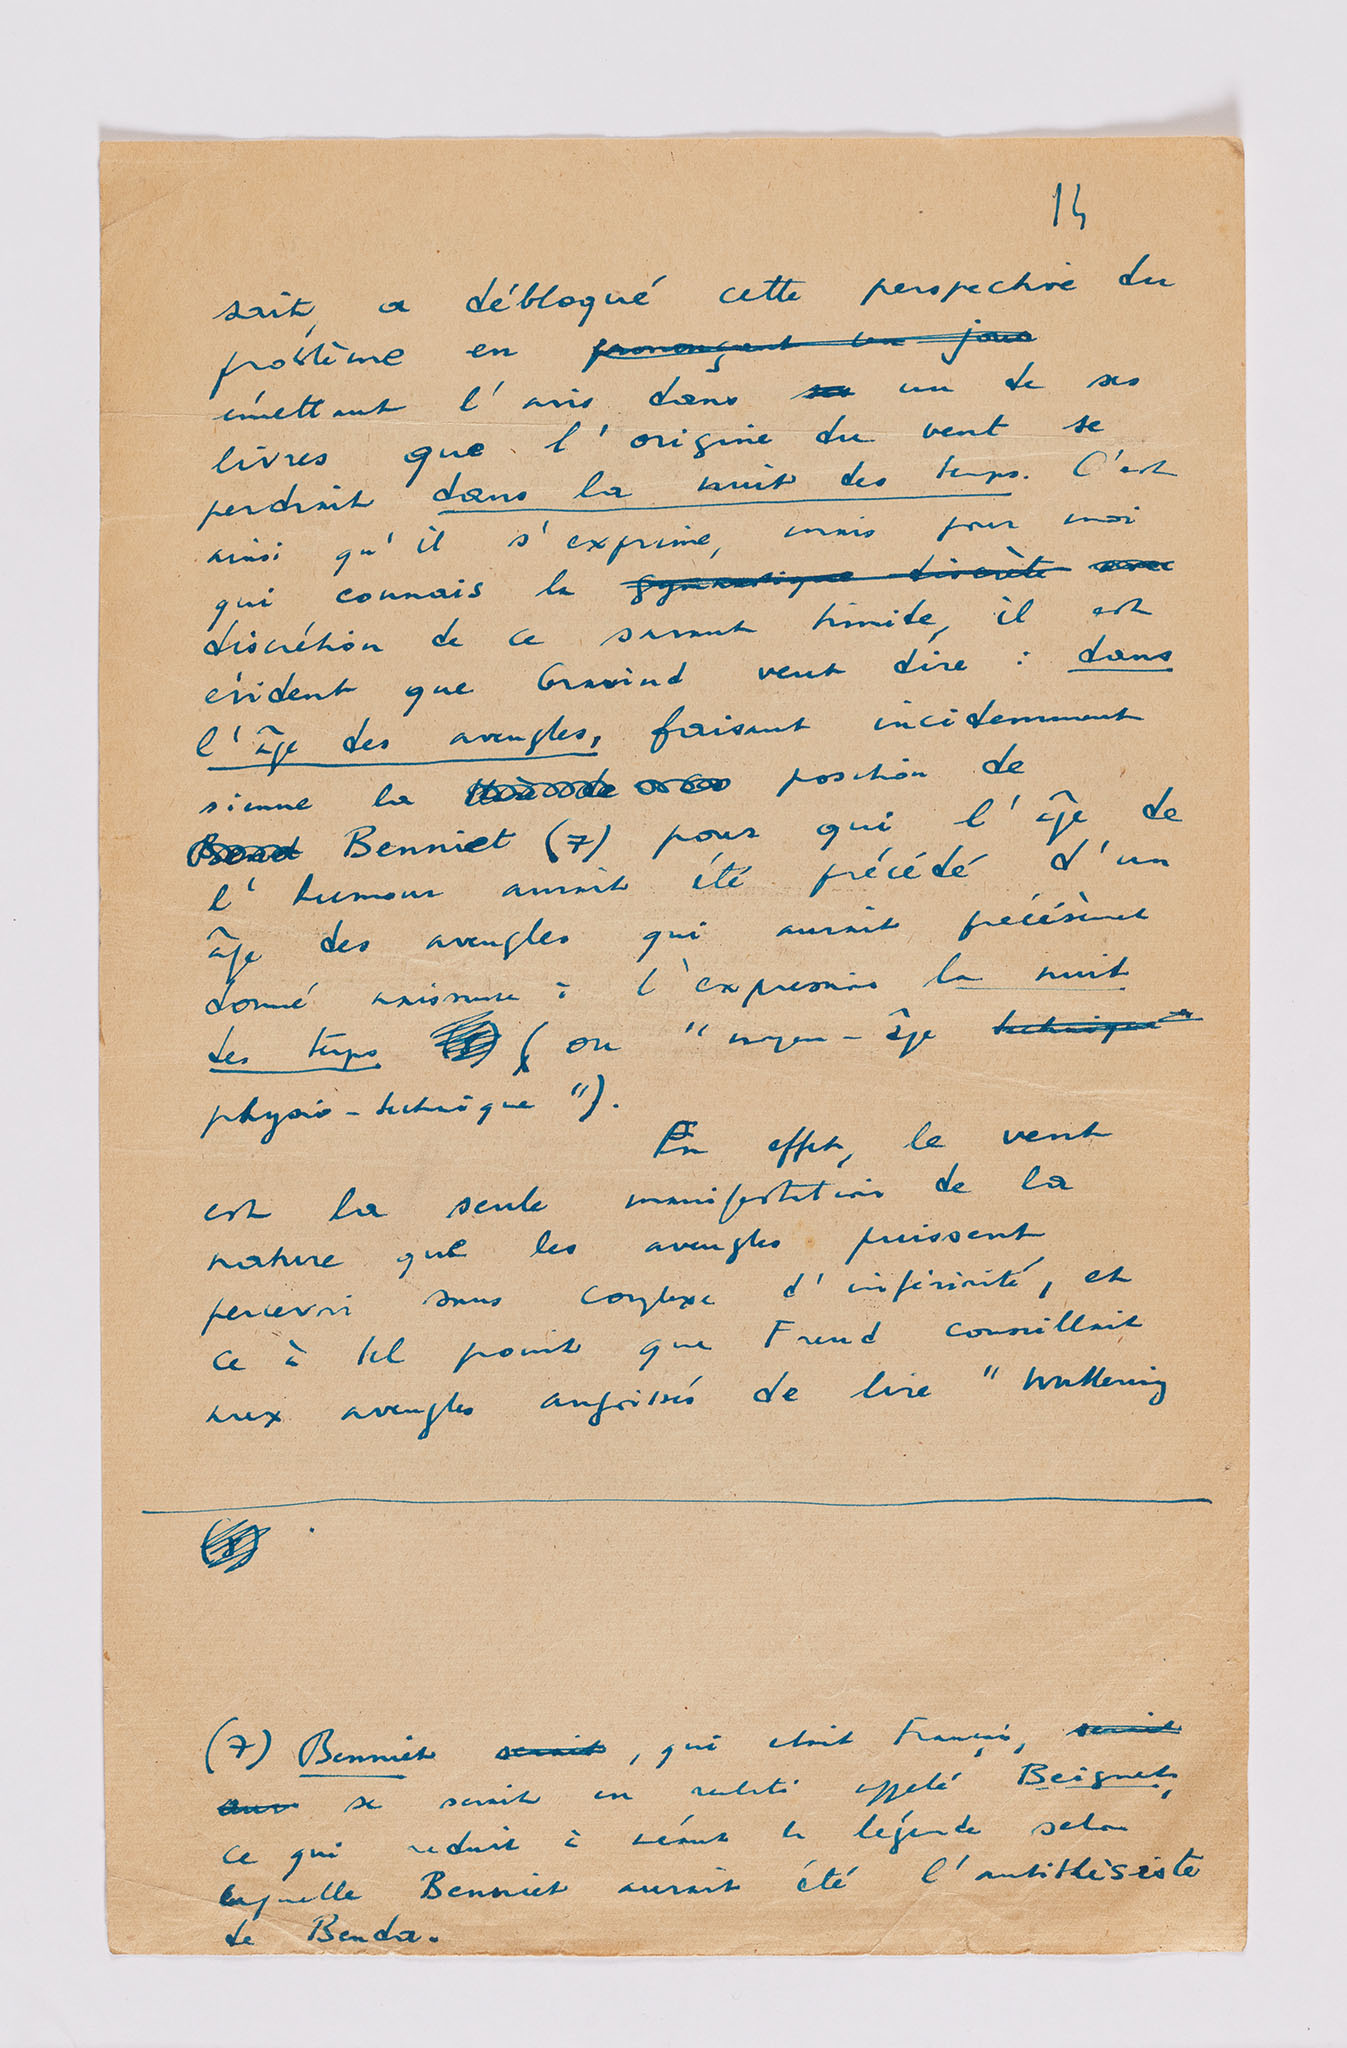 14
sait, a débloqué cette perspective du
problème en prononçant un jour
émettant l'avis dans un de ses
livres que l'origine du vent se
perdrait dans la nuit des temps. C'est
ainsi qu'il s'exprime, mais pour moi
qui connais la gymnastique discrète avec
discrétion de ce savant timide, il est
évident que veut dire : dans
l'âge des aveugles, faisant incidemment
sienne la position de
Benniet (7) pour qui l'âge de
l'humour aurait été précédé d'un
âge des aveugles qui aurait précisément
donné naissance à l'expression la nuit
des temps (8) (ou "moyen-âge technique"
physio-technique").
En effet, le vent
est la seule manifestation de la
nature que les aveugles puissent
percevoir sans complexe d'infériorité, et
ce à tel point que Freud conseillait
aux aveugles angoissés de lire "Wuttering
(8)
(7) Benniet serait, qui était Français, serait
se serait en réalité appelé Beignet,
ce qui réduit à néant la légende selon
laquelle Benniet aurait été l'antithésiste
de Benda.